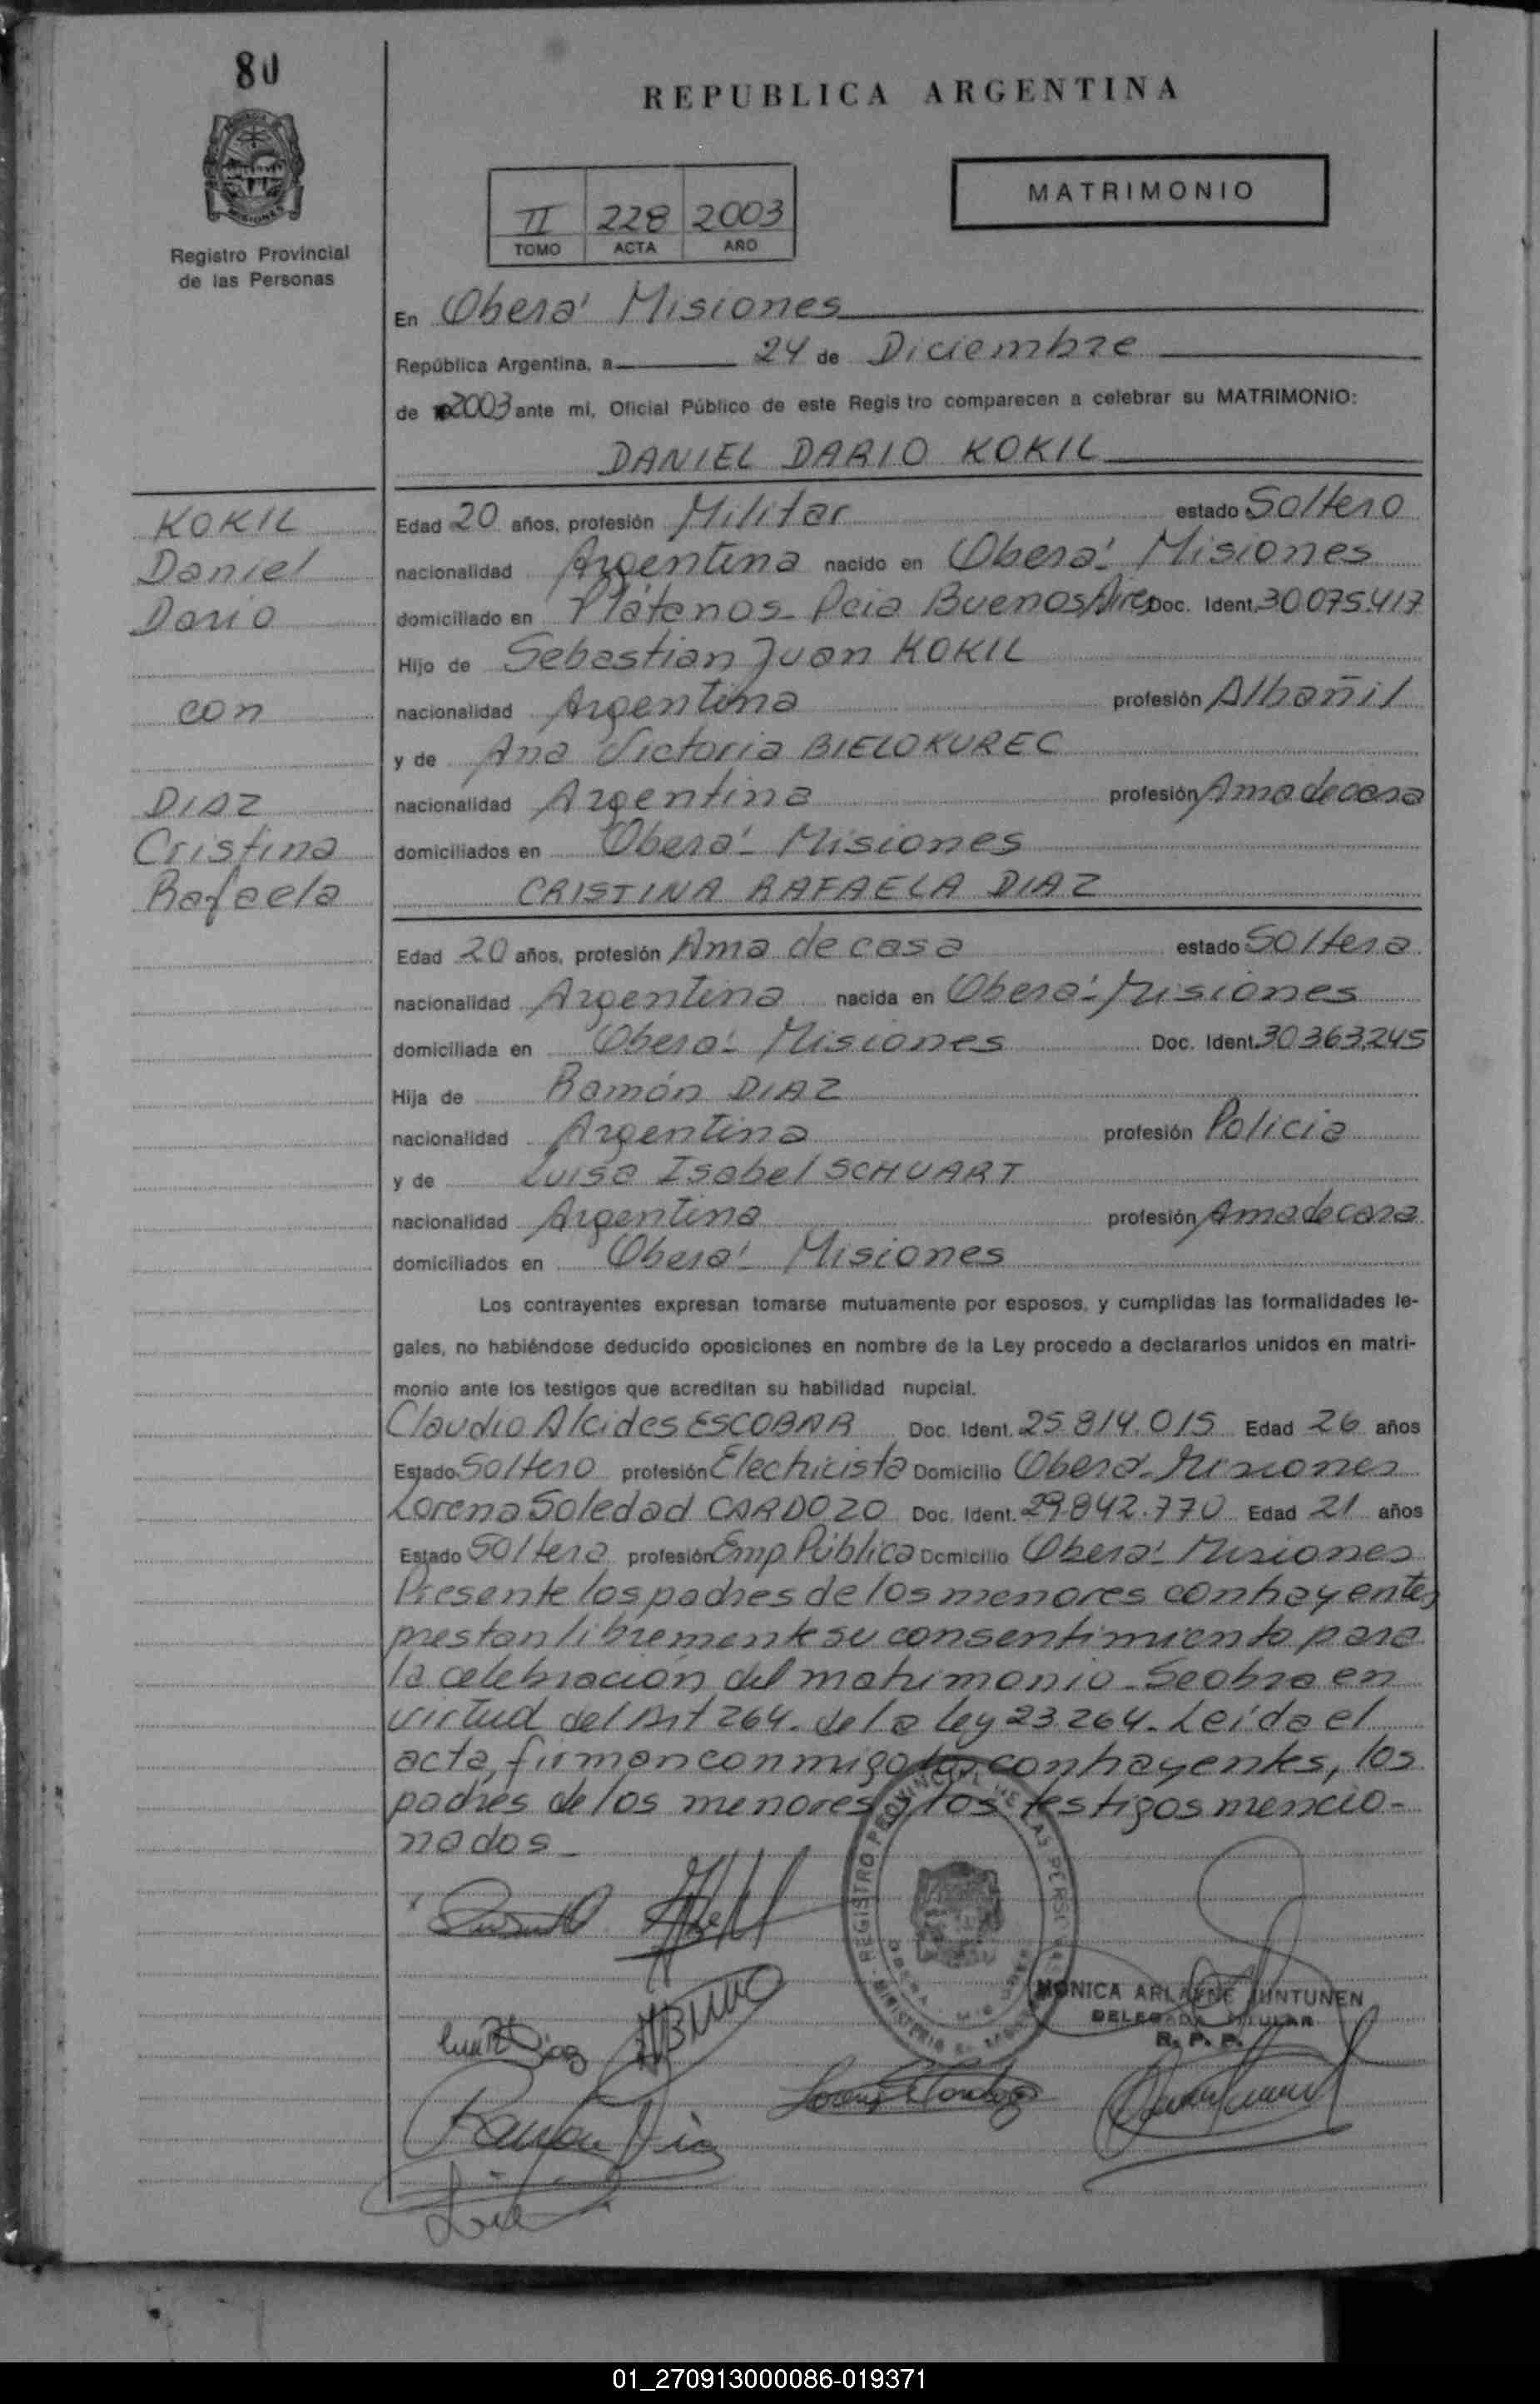 80
REPUBLICA ARGENTINA
MISIONES
Registro Provincial
de las Personas
II 228 2003
TOMO ACTA AÑO
MATRIMONIO
En Oberá Misiones
República Argentina, a 24 de Diciembre
de 2003 ante mi, Oficial Público de este Regis tro comparecen a celebrar su MATRIMONIO:
DANIEL DARIO KOKIL
KOKIL
Daniel
Dario
con
DIAZ
Cristina
Rafaela
Edad 20 años, profesión Militar estado Soltero
nacionalidad Argentina nacido en Oberá - Misiones
domiciliado en Plátanos - Pcia Buenos Aires Doc. Ident. 30.075.417
Hijo de Sebastian Juan KOKIL
nacionalidad Argentina profesión Albañil
y de Ana Victoria BIELOKUREC
nacionalidad Argentina profesión Ama de casa
domiciliados en Oberá - Misiones
CRISTINA RAFAELA DIAZ
Edad 20 años, profesión Ama de casa estado Soltera
nacionalidad Argentina nacida en Oberá - Misiones
domiciliada en Oberá - Misiones Doc. Ident. 30.363.245
Hija de Ramón DIAZ
nacionalidad Argentina profesión Policia
y de Luisa Isabel SCHUART
nacionalidad Argentina profesión Ama de casa
domiciliados en Oberá - Misiones
Los contrayentes expresan tomarse mutuamente por esposos, y cumplidas las formalidades le-
gales, no habiéndose deducido oposiciones en nombre de la Ley procedo a declararlos unidos en matri-
monio ante los testigos que acreditan su habilidad nupcial.
Claudio Alcides ESCOBAR Doc. Ident. 25.814.015 Edad 26 años
Estado Soltero profesión Electricista Domicilio Oberá - Misiones
Lorena Soledad CARDOZO Doc. Ident. 29.842.770 Edad 21 años
Estado Soltera profesión Emp Pública Domicilio Oberá - Misiones
Presente los padres de los menores contrayentes
prestan libremente su consentimiento para
la celebración del matrimonio - Se obra en
virtud del Art 264. de la ley 23.264. Leída el
acta, firman conmigo los contrayentes, los
padres de los menores y los testigos mencio-
nados -
REGISTRO PROVINCIAL DE LAS PERSONAS
MONICA ARLAYNE JUNTUNEN
DELEGADA TITULAR
R. P. P.
Diaz
Lorena Cardozo
Ramón Diaz
01_270913000086-019371